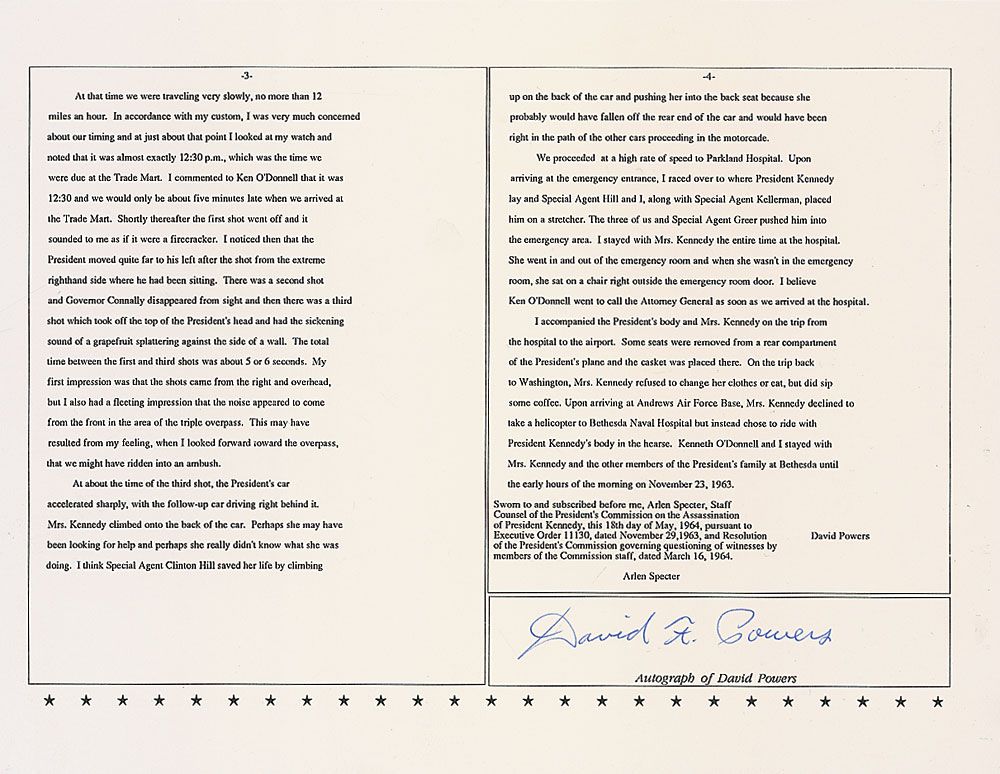 -3-
At that time we were traveling very slowly, no more than 12
miles an hour. In accordance with my custom, I was very much concerned
about our timing and at just about that point I looked at my watch and
noted that it was almost exactly 12:30 p.m., which was the time we
were due at the Trade Mart. I commented to Ken O'Donnell that it was
12:30 and we would only be about five minutes late when we arrived at
the Trade Mart. Shortly thereafter the first shot went off and it
sounded to me as if it were a firecracker. I noticed then that the
President moved quite far to his left after the shot from the extreme
righthand side where he had been sitting. There was a second shot
and Governor Connally disappeared from sight and then there was a third
shot which took off the top of the President's head and had the sickening
sound of a grapefruit splattering against the side of a wall. The total
time between the first and third shots was about 5 or 6 seconds. My
first impression was that the shots came from the right and overhead,
but I also had a fleeting impression that the noise appeared to come
from the front in the area of the triple overpass. This may have
resulted from my feeling, when I looked forward toward the overpass,
that we might have ridden into an ambush.
At about the time of the third shot, the President's car
accelerated sharply, with the follow-up car driving right behind it.
Mrs. Kennedy climbed onto the back of the car. Perhaps she may have
been looking for help and perhaps she really didn't know what she was
doing. I think Special Agent Clinton Hill saved her life by climbing
-4-
up on the back of the car and pushing her into the back seat because she
probably would have fallen off the rear end of the car and would have been
right in the path of the other cars proceeding in the motorcade.
We proceeded at a high rate of speed to Parkland Hospital. Upon
arriving at the emergency entrance, I raced over to where President Kennedy
lay and Special Agent Hill and I, along with Special Agent Kellerman, placed
him on a stretcher. The three of us and Special Agent Greer pushed him into
the emergency area. I stayed with Mrs. Kennedy the entire time at the hospital.
She went in and out of the emergency room and when she wasn't in the emergency
room, she sat on a chair right outside the emergency room door. I believe
Ken O'Donnell went to call the Attorney General as soon as we arrived at the hospital.
I accompanied the President's body and Mrs. Kennedy on the trip from
the hospital to the airport. Some seats were removed from a rear compartment
of the President's plane and the casket was placed there. On the trip back
to Washington, Mrs. Kennedy refused to change her clothes or eat, but did sip
some coffee. Upon arriving at Andrews Air Force Base, Mrs. Kennedy declined to
take a helicopter to Bethesda Naval Hospital but instead chose to ride with
President Kennedy's body in the hearse. Kenneth O'Donnell and I stayed with
Mrs. Kennedy and the other members of the President's family at Bethesda until
the early hours of the morning on November 23, 1963.
Sworn to and subscribed before me, Arlen Specter, Staff
Counsel of the President's Commission on the Assassination
of President Kennedy, this 18th day of May, 1964, pursuant to
Executive Order 11130, dated November 29,1963, and Resolution
of the President's Commission governing questioning of witnesses by
members of the Commission staff, dated March 16, 1964.
David Powers
Arlen Specter
David F. Powers
Autograph of David Powers